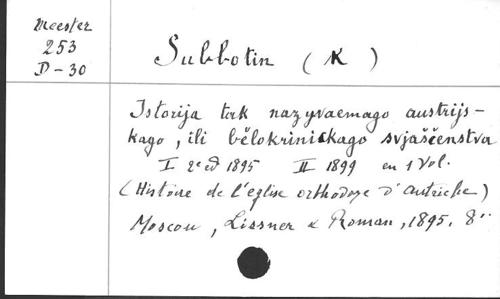 Meester
253
D-30
Subbotin (K)
Istorija tak nazyvaemago austrijs-
kago, ili bělokrinickago svjaščenstva
I 2e ed 1895 II 1899 en 1 Vol.
(Histoire de l'eglise orthodoxe d'autriche)
Moscou, Lissner & Roman, 1895. 8°.